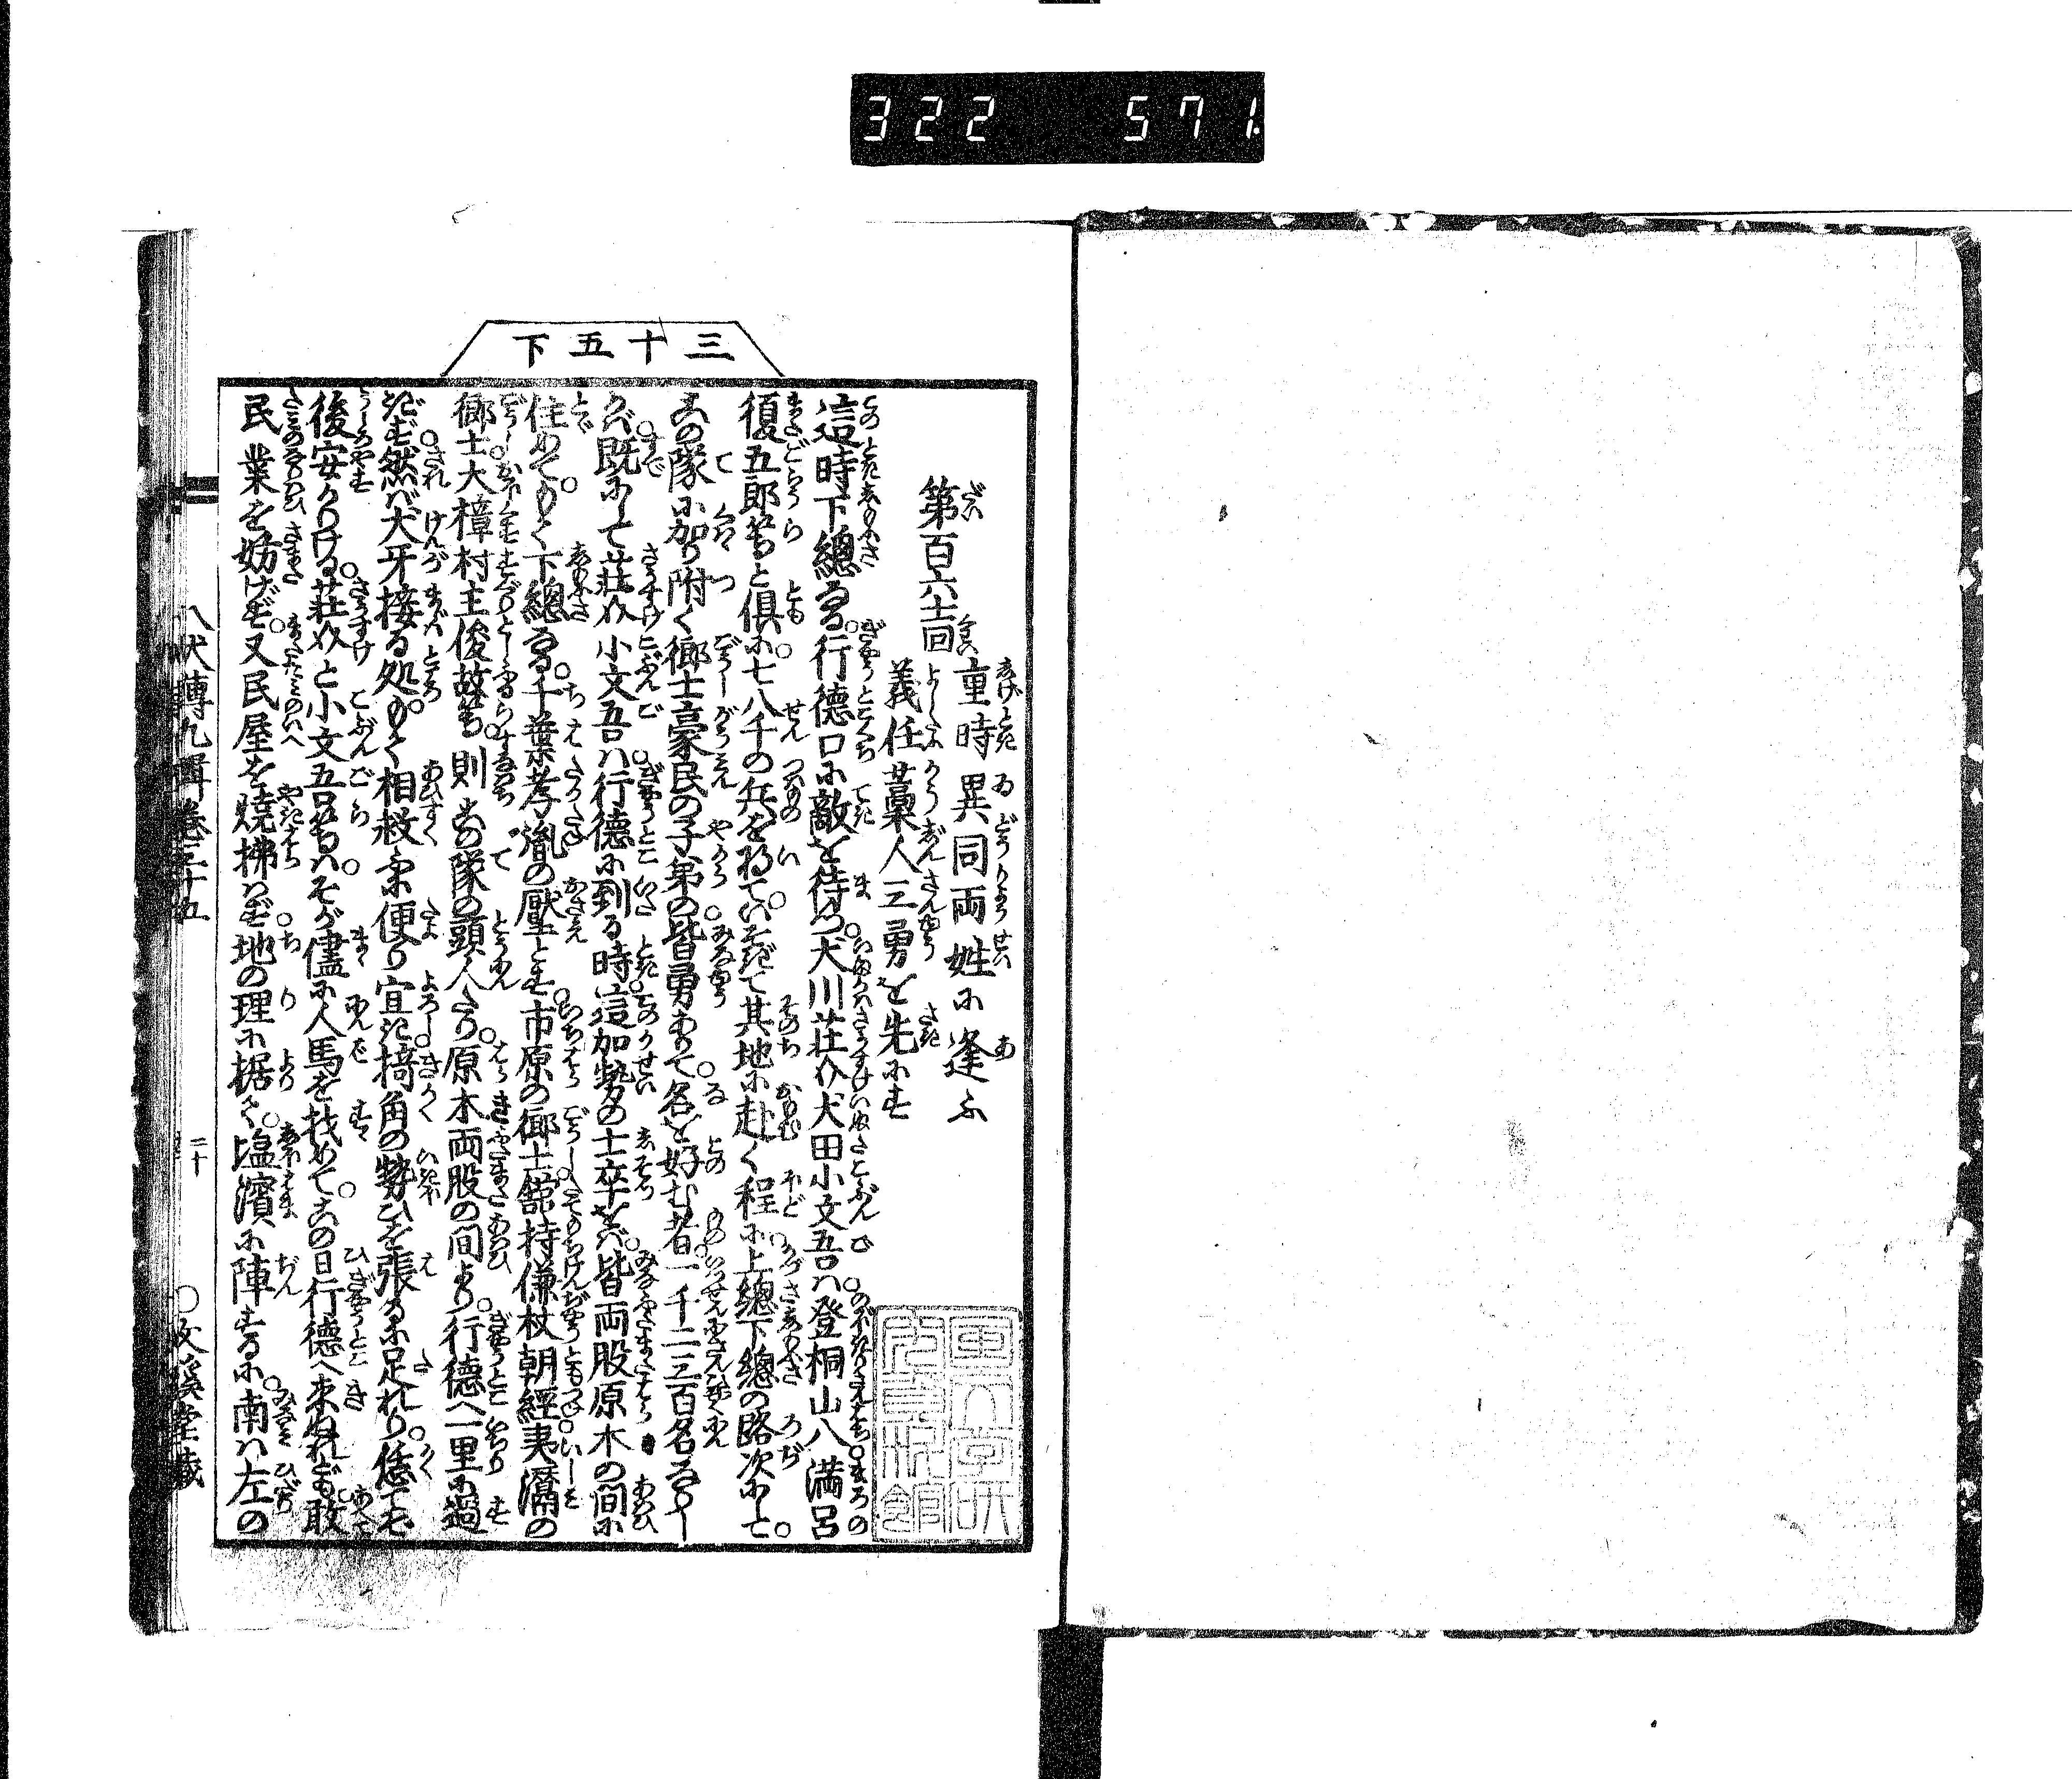 322 571
三十五下
第百六十二回
重時異同両姓に逢ふ
義任藁人三勇を先にす
這時下總なる。行徳口に敵を待つ。犬川荘介犬田小文吾ハ登桐山八満呂
復五郎等と倶に。七八千の兵を将て。いそぎて其地に赴く程に。上總下總の路次にして。
この隊に加り附く。郷士豪民の子弟の。皆勇ありて。名を好む者。一千二三百名なりしかバ
既にして荘介小文吾ハ。行徳に到る時。這加勢の士卒をバ。皆両股原木の間に
住めて。もて下總なる。千葉孝胤の壓とす。市原の郷士舘持傔杖朝經夷灊の
郷士大樟村主俊故等。則この隊の頭人たり。原木両股の間より。行徳へ一里に過
ぎず。然バ犬牙接る処。もて相救ふに便り宜き。掎角の勢ひを張るに足れり。恁てぞ
後安かりける。荘介と小文吾等ハ。そが儘に人馬を找めて。この日行徳へ来ぬれども。敢
民業を妨げず。又民屋を燒拂ハず。地の理に据て。塩濱に陣するに。南ハ左の
八犬傳九輯卷三十五
二十
〇文溪堂藏